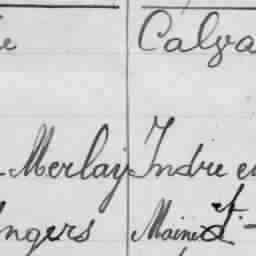 Calva
Merlay Indre e
ngers Maine et